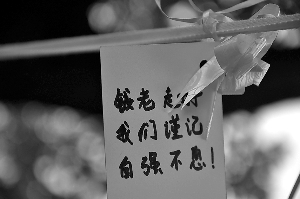 钱老走好
我们谨记
自强不息!